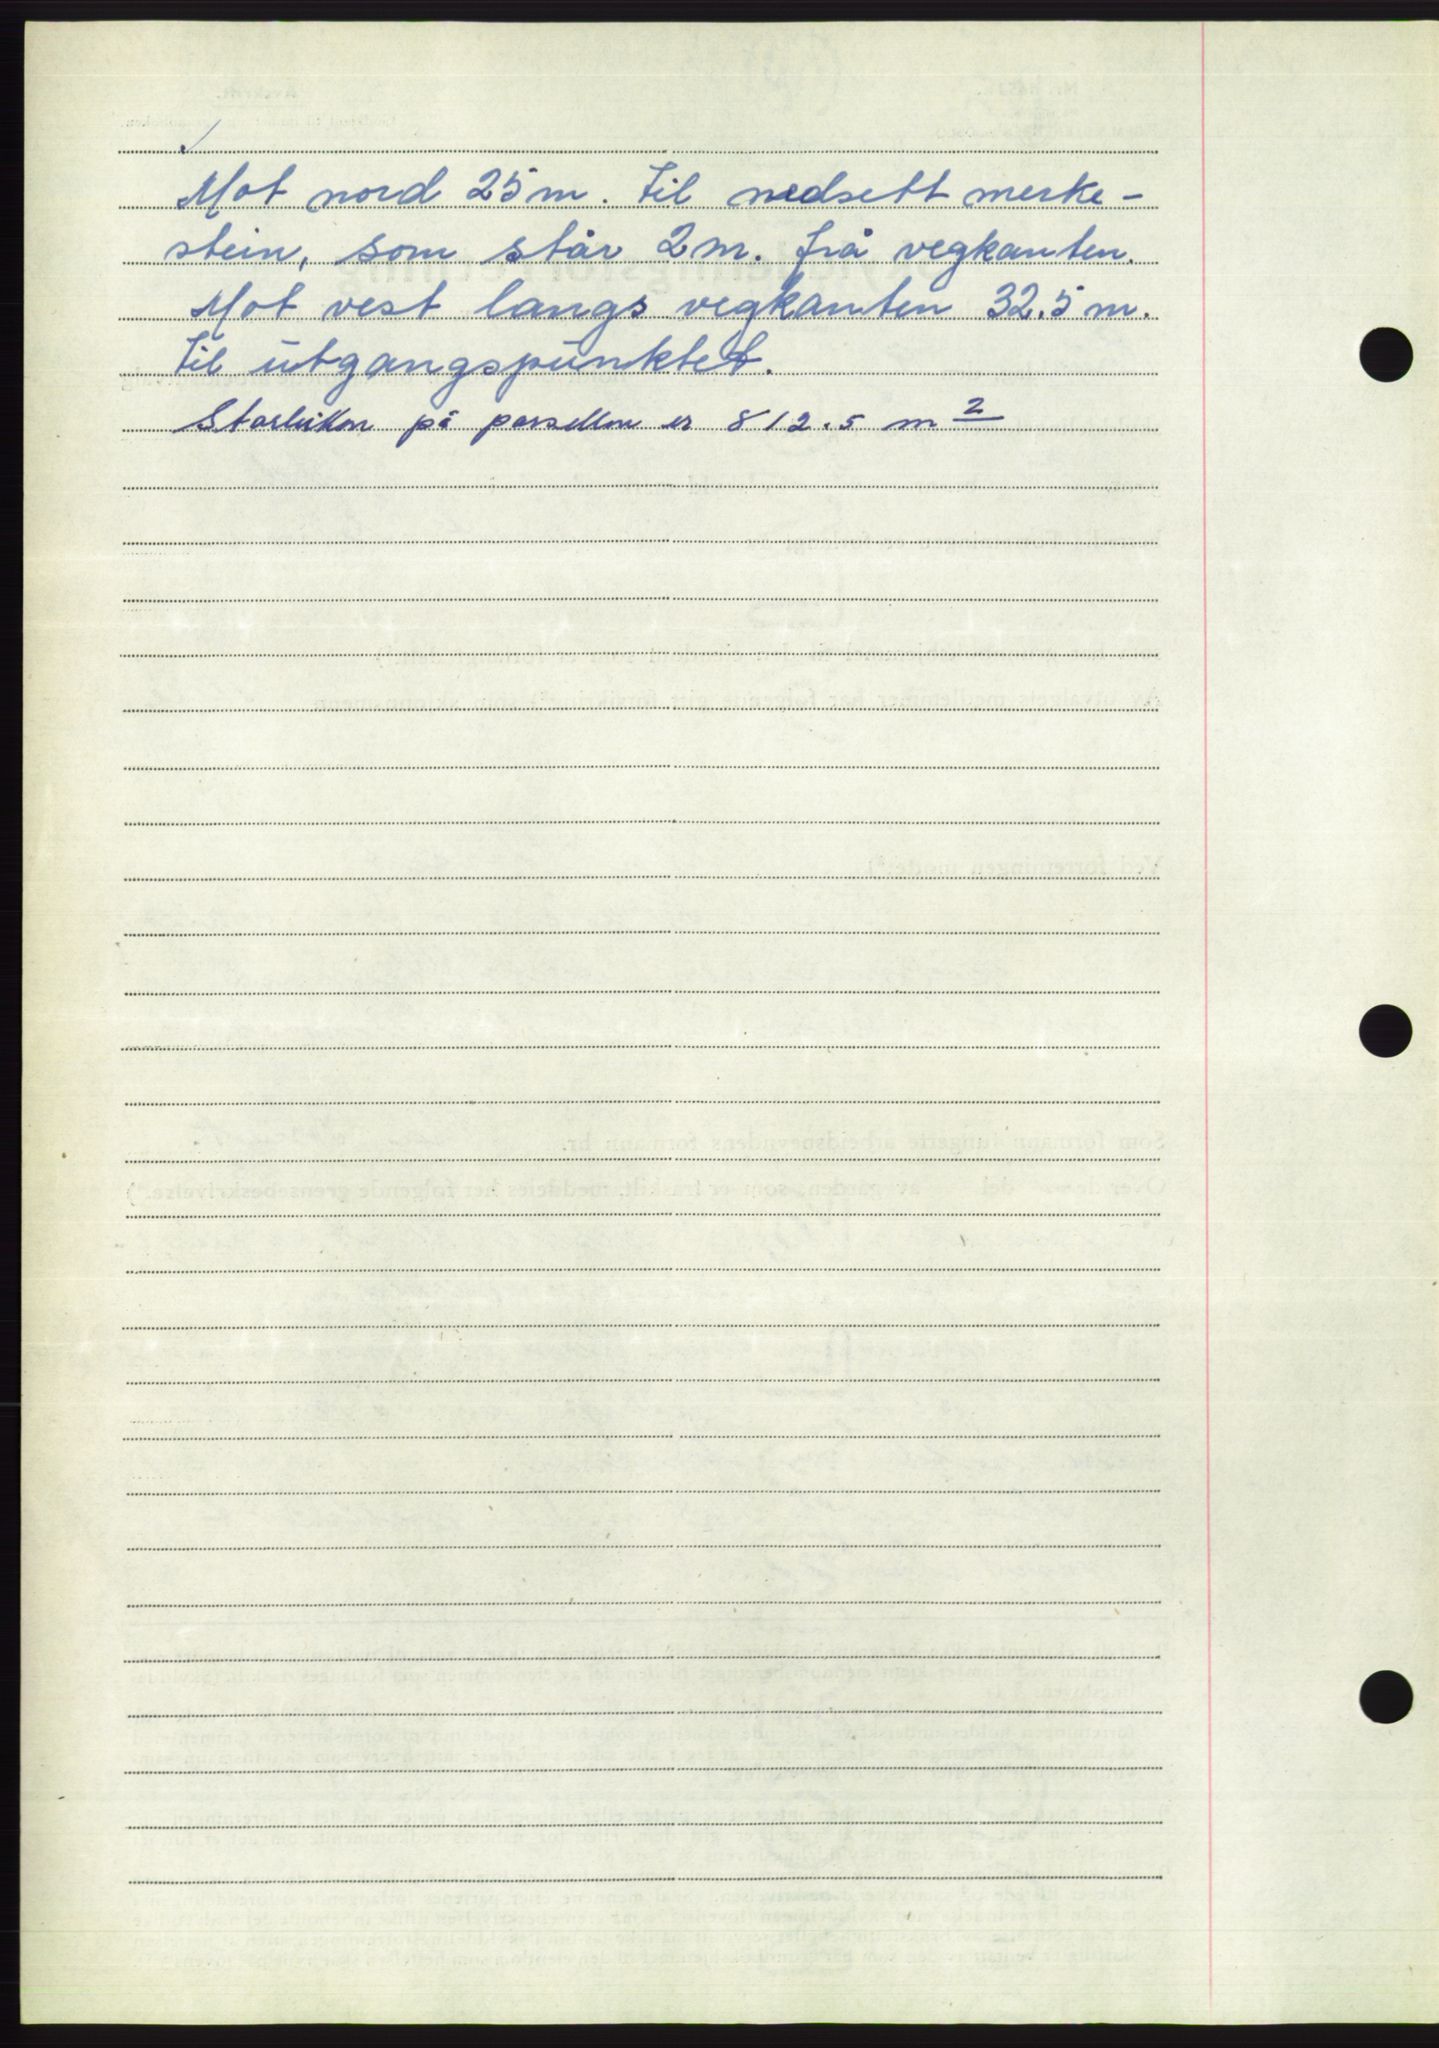 Mot nord 25 m. til nedsett merke-
stein, som står 2 m. frå vegkanten.
Mot vest langs vegkanten 32.5 m.
til utgangspunktet.
Storleiken på parsellen er 812.5 m 2